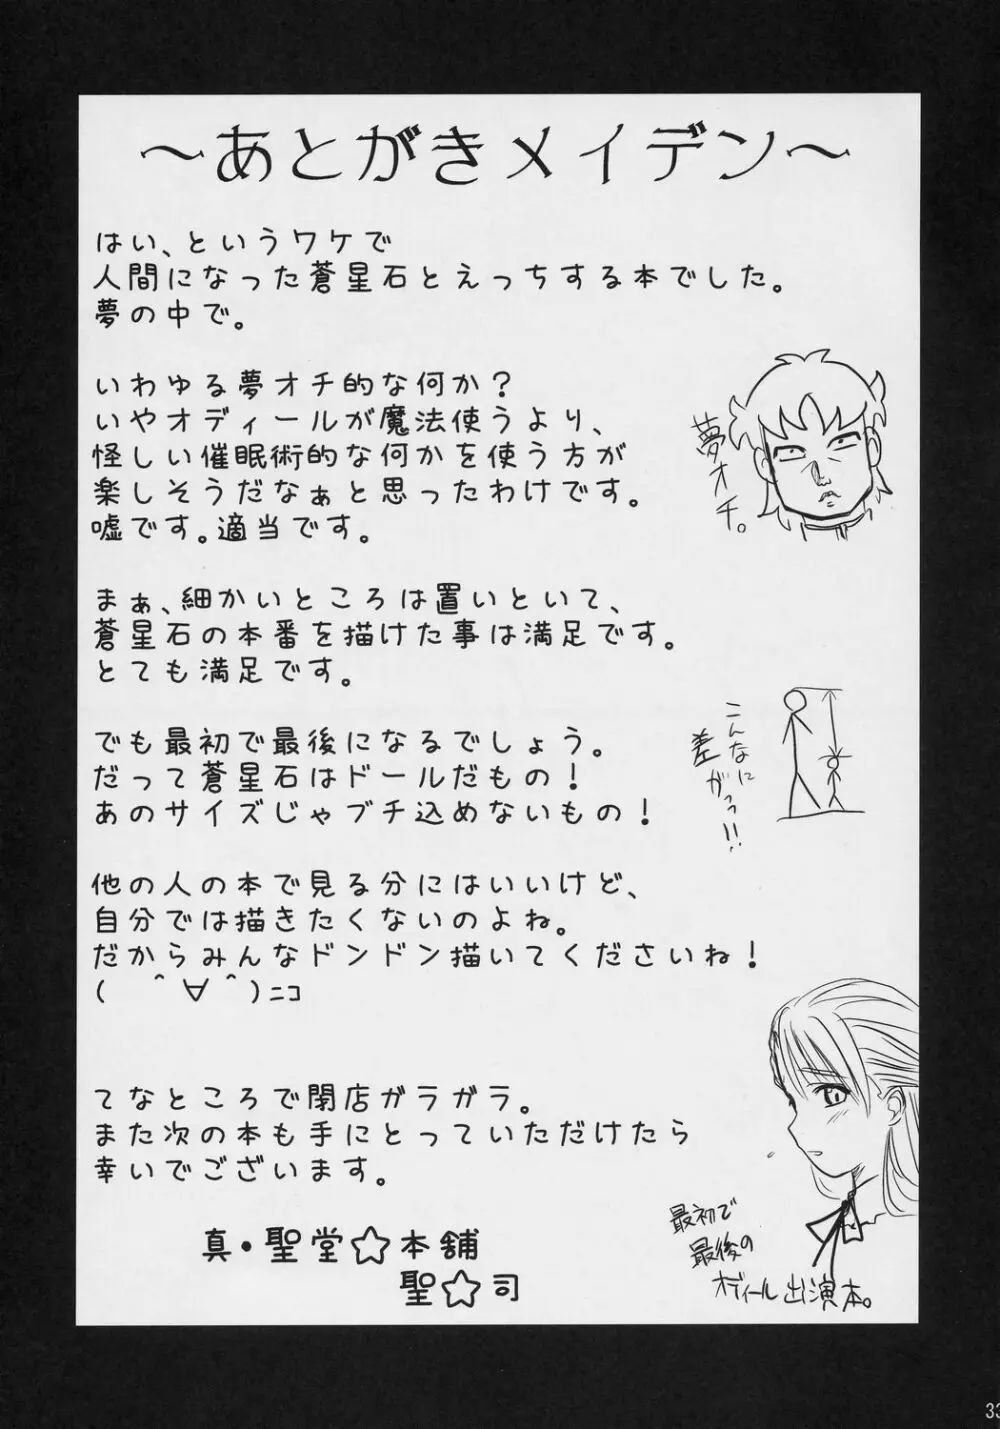 ～あとがきメイデン～
はい、というワケで
人間になった蒼星石とえっちする本でした。
夢の中で。
いわゆる夢オチ的な何か？
いやオディールが魔法使うより、
怪しい催眠術的な何かを使う方が
楽しそうだなぁと思ったわけです。
嘘です。適当です。
夢オチ。
まぁ、細かいところは置いといて、
蒼星石の本番を描けた事は満足です。
とても満足です。
でも最初で最後になるでしょう。
だって蒼星石はドールだもの！
あのサイズじゃブチ込めないもの！
こんなに
差がっ！！
他の人の本で見る分にはいいけど、
自分では描きたくないのよね。
だからみんなドンドン描いてくださいね！
( ＾∀＾)ﾆｺ
てなところで閉店ガラガラ。
また次の本も手にとっていただけたら
幸いでございます。
真・聖堂☆本舗
聖☆司
最初で
最後の
オディール出演本。
33